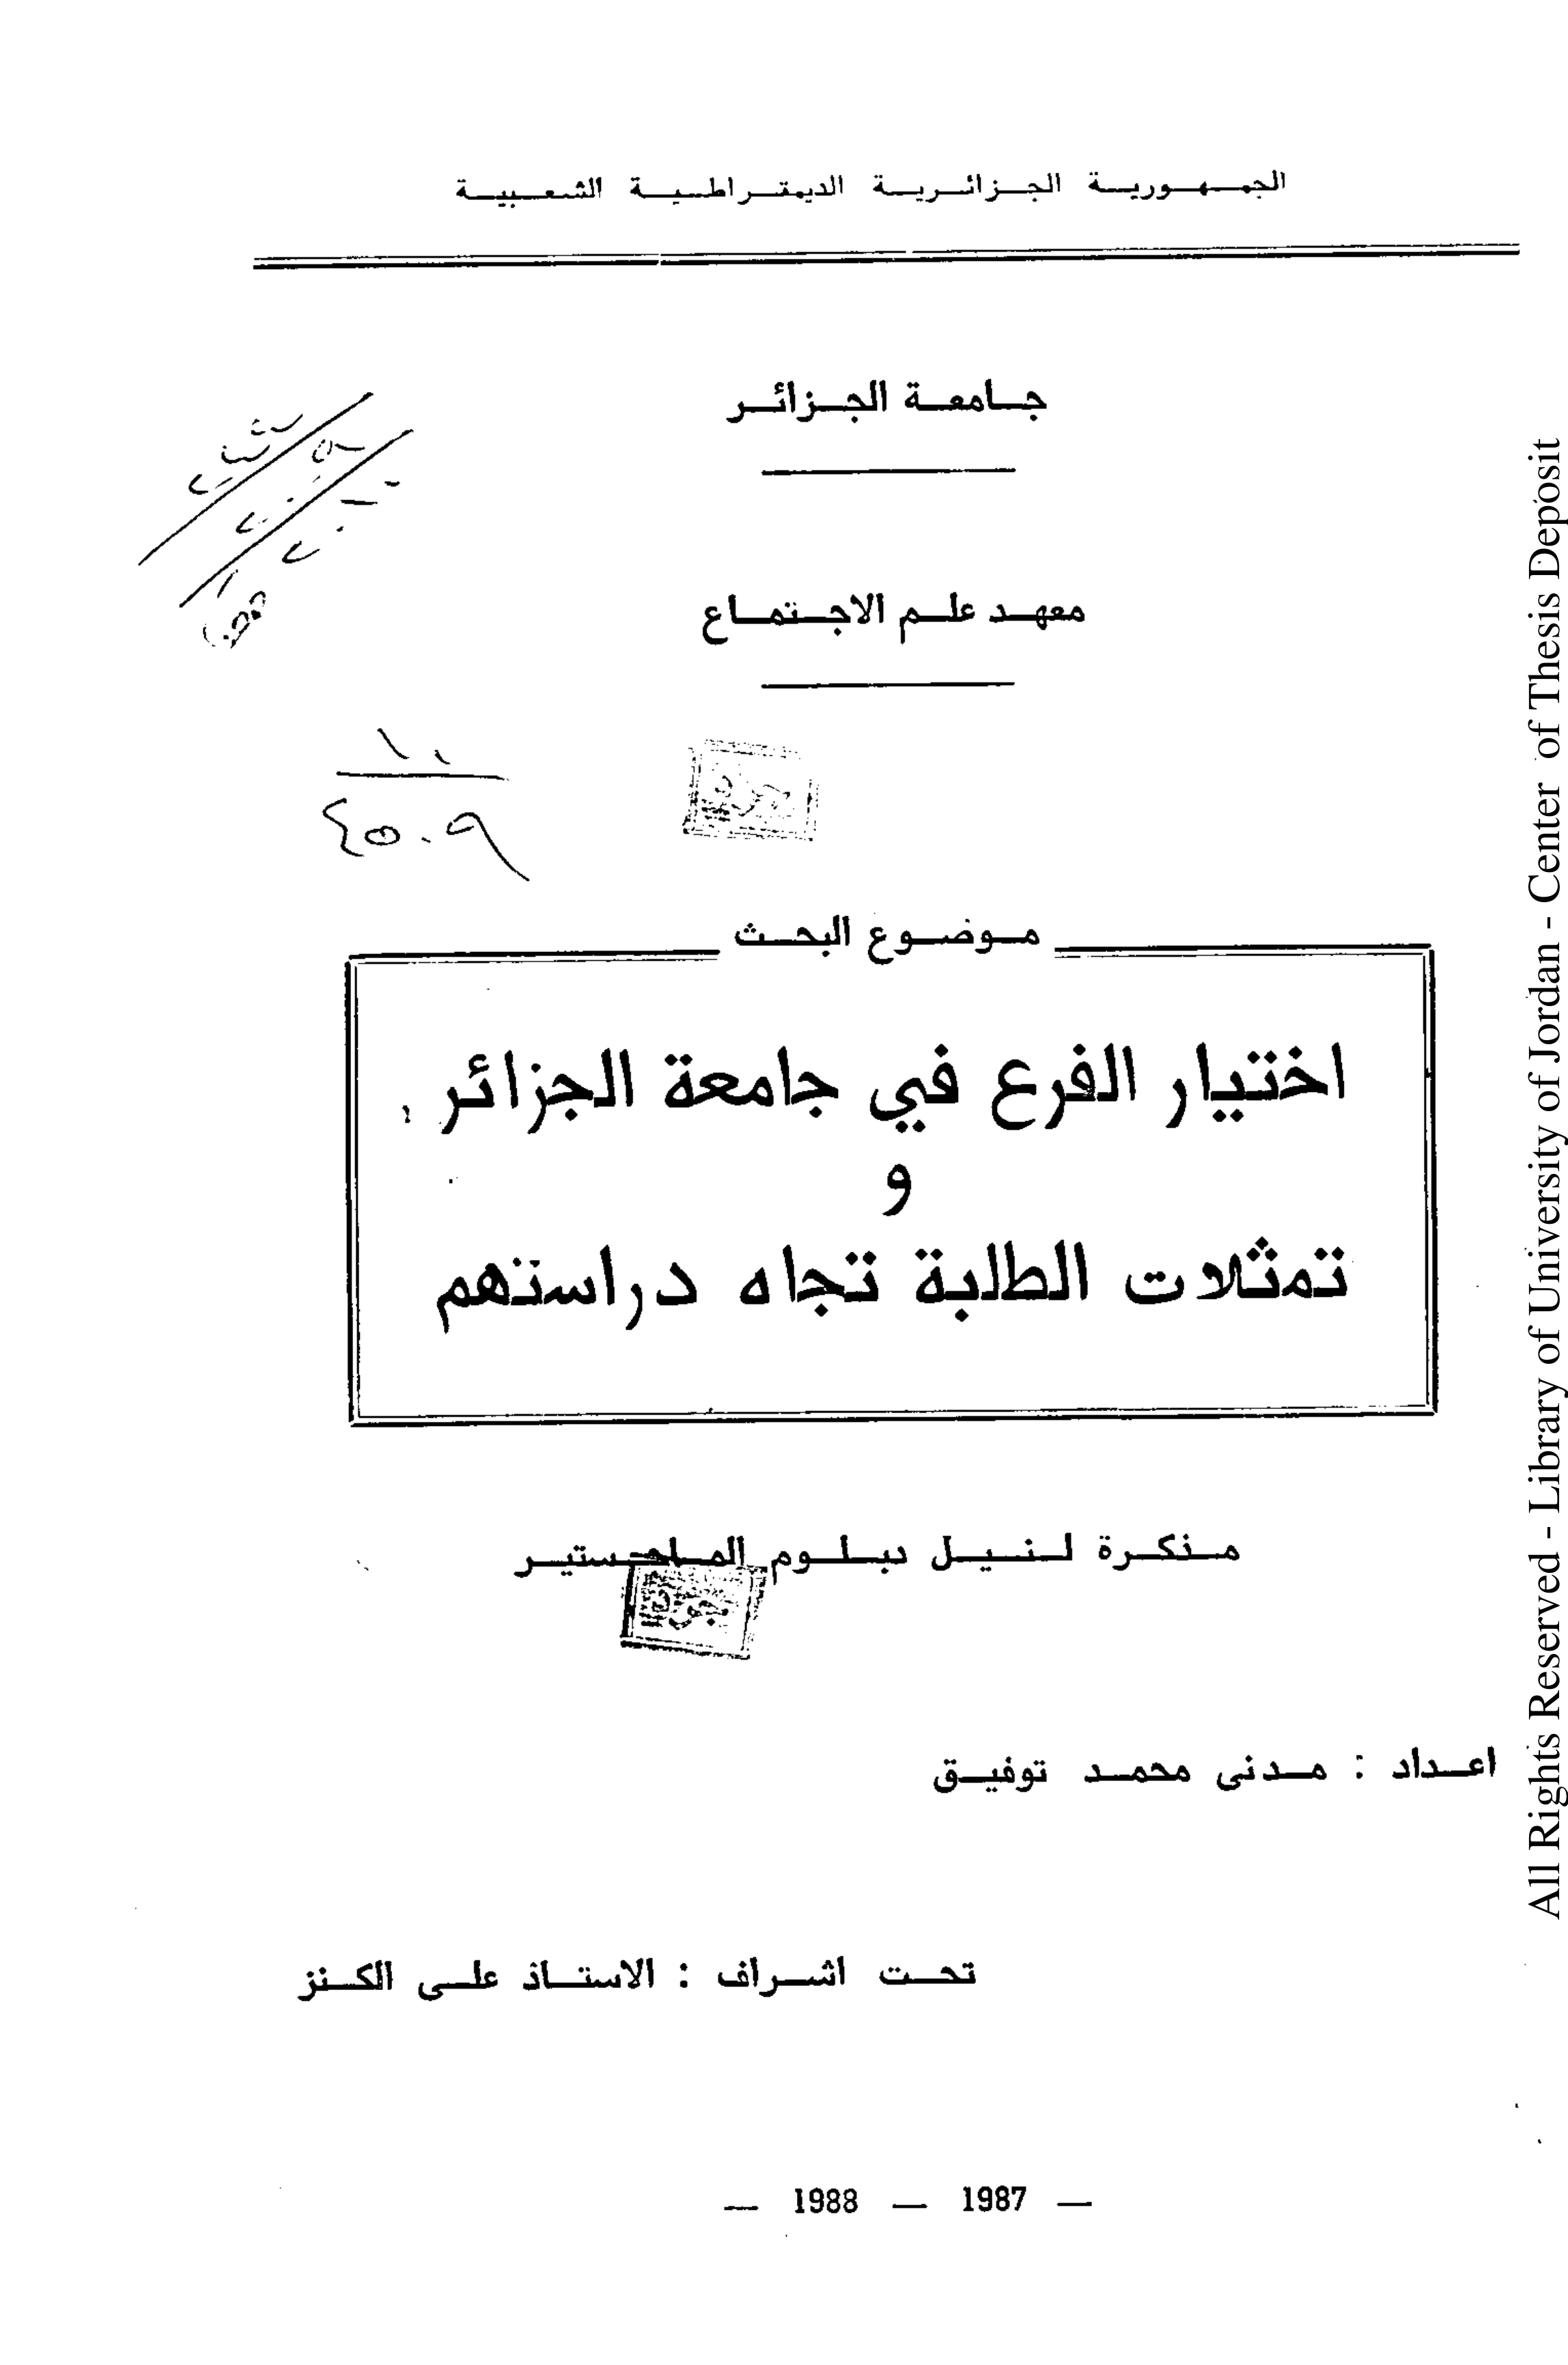 الجمهورية الجزائرية الديمقراطية الشعبية
جامعة الجزائر
معهد علم الاجتماع
٤٥٠٩
موضوع البحث
اختيار الفرع في جامعة الجزائر
و
تمثلات الطلبة تجاه دراستهم
مذكرة لنيل دبلوم الماجستير
اعداد : مدنى محمد توفيق
تحت اشراف : الاستاذ على الكنز
— 1987 — 1988 —
All Rights Reserved - Library of University of Jordan - Center of Thesis Deposit